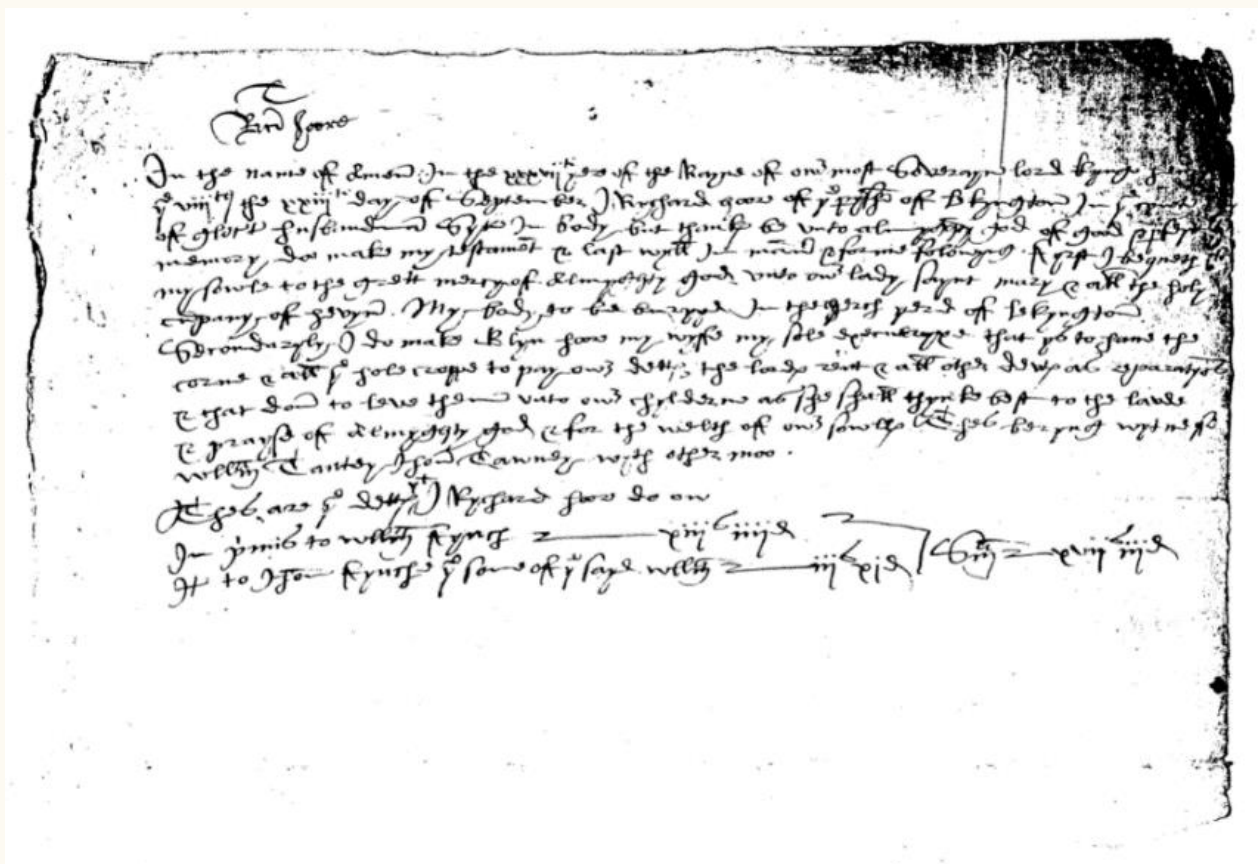 T
Ricd Hoore
In the name of Amen In the xxxviith yere of the Rayne of owr most Soverayn lord kynge
ye viiith the xxiiith day of September I Rychard hoore of ye pyshe off Ickyngton In ye
of glocet husbandman Syke In body but thanke be unto almyghty god of good
memory do make my testament & last wyll In maner & forme folowyng Fyrst I bequeth
my sowle to the grett mercy of Almyghty god unto owr lady saynt mary & all the holy
cupany of hevyn My body to be buryed In the cherch yerd of Ickyngton
Secondaryly I do make Elyn hoore my wyfe my sole executryxe that ys to have the
corne & all ye hole croppe to pay owr detts the lords rent & all other dewys as reparations
& that don to leve them unto owr chylderne as she shall thynke best to the laude
& prayse of Almyghty god & for the welth off owr sowlls Thes beryng wytnesse
wyllm Jhon Tawney wyth other moo .
Thes are ye detts yt I Rychard hoore do ow
In primis to wyllm Fynch xiiis iiiid
It to Jhon Fynche ye sone of ye sayd wyllm iiis xid Sm xviis iiid